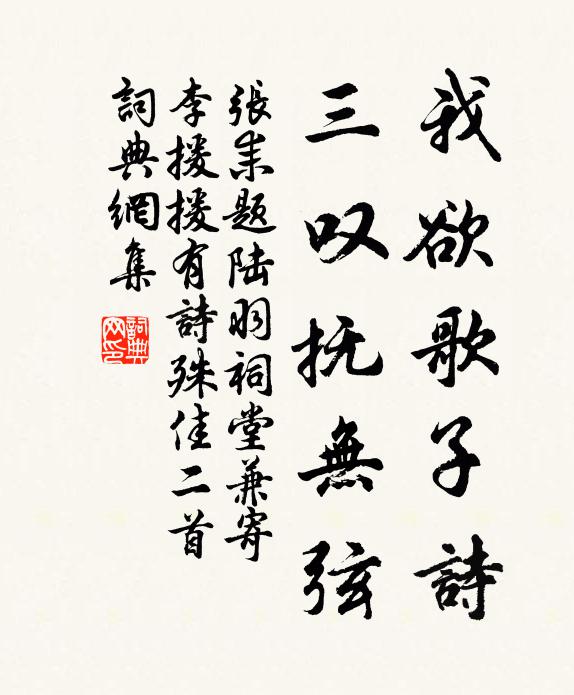 我欲歌子詩
三叹抚無弦
張耒题陆羽祠堂兼寄
李援援有詩殊佳二首
詞典網集
詞典网印